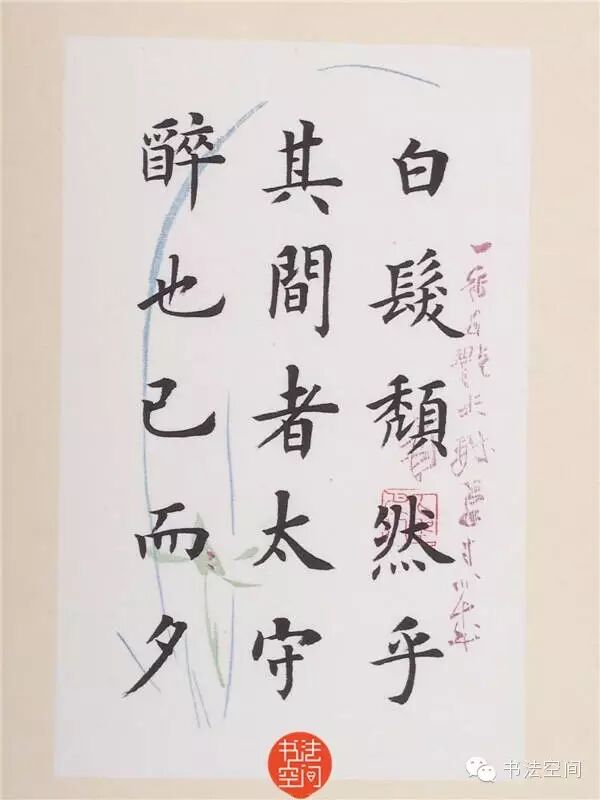 白髮頹然乎
其間者太守
醉也已而夕
书法
空间
书法空间